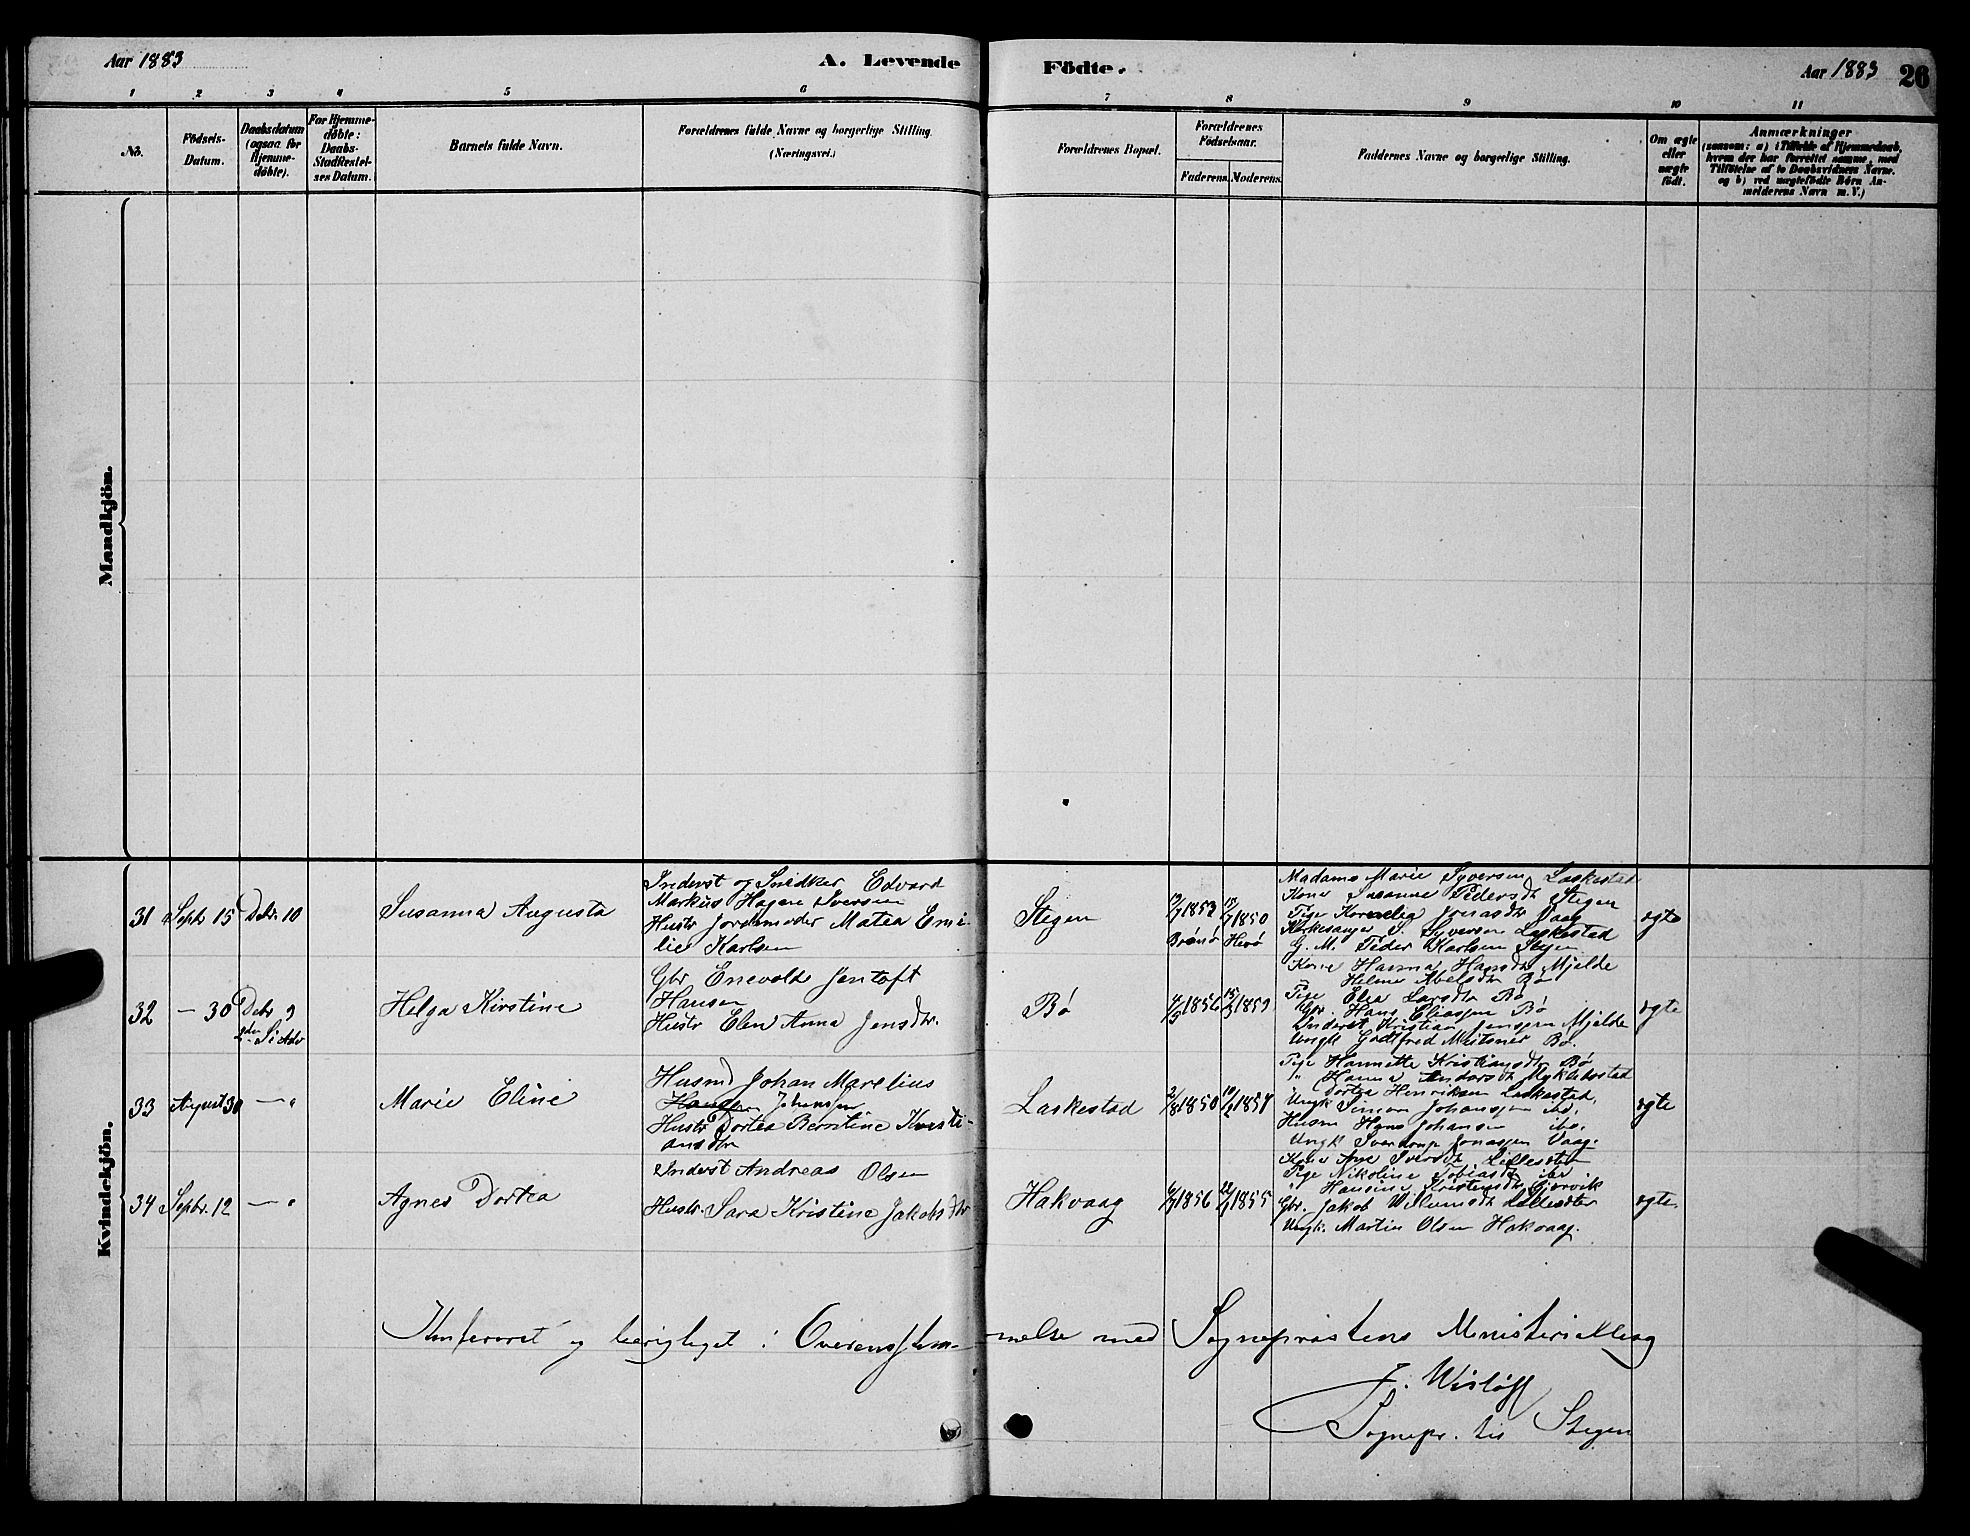 Aar 1883
A. Levende Födte.
Aar 1883
26
1 2 3 4 5 6 7 8 9 10 11
No.
Födsels-
Datum.
Daabsdatum
(ogsaa for
Hjemme-
döbte).
For Hjemme-
döbte:
Daabs-
Stadfestel-
ses Datum.
Barnets fulde Navn.
Forældrenes fulde Navne og borgerlige Stilling.
(Næringsvei.)
Forældrenes Bopæl.
Forældrenes
Födselsaar.
Faderens. Moderens.
Faddernes Navne og borgerlige Stilling.
Om ægte
eller
uægte
födt.
Anmærkninger
(saasom: a) i Tilfælde af Hjemmedaab,
hvem der har forrettet samme, med
Tilföielse af to Daabsvidners Navne.
og b) ved uægtefödte Börn An-
melderens Navn m. V.)
Mandkjön.
Kvindekjön.
31 Septr 15 Debr. 10
Susanna Augusta
Inderst og Snedker Edvard
Markus Hagen Iversen
Hustr Jordemoder Matea Emi-
lie Karlsen
Stegen
1853 1850
Brønø Herø
Madame Marie Syversen Laskestad
Kone Susanna Pedersdtr Stegen
Pige Kornelia Jonasdtr Vaag
Kirkesanger S. Syversen Laskestad
G. M. Peder Karlsen Stegen
ægte
32 — 30 Debr 9
2den S i Adv
Helga Kirstine
Gbr Enevold Jentoft
Hansen
Hustr Elen Anna Jensdtr.
Bø
1856 1859
Kone Hanna Hansdtr Mjelde
" Helene Abelsdtr Bø
Pige Elea Larsdtr Bø
Gbr. Hans Eliassen Bø
Inderst Kristian Jensen Mjelde
Ungk Godtfred Meitsner Bø.
ægte
33 August 30 — "
Marie Eline
Husmd Johan Marelius
Hansen Johansen
Hustr Dortea Berntine Kristi-
ansdtr
Laskestad
1850 1857
Pige Hannette Kristiansdtr Bø
" Hanna Andersdtr Myklebostad
Dortea Henriksen Laskestad,
Ungk Simon Johansen ibd.
Husm Hans Johansen ibd.
Ungk Sverdrup Jonassen Vaag.
ægte
34 Septbr. 12 — "
Agnes Dortea
Inderst Andreas Olsen
Hustr. Sara Kristine Jakobsdtr
Hakvaag
1856 1855
Kone Ane Iversdtr
Pige Nikoline Tobiasdtr ibd
" Hansine Kristensdtr
Gbr. Jakob
Ungk. Martin Olsen Hakvaag.
ægte
Konfereret og berigtiget i Overensstem-melse med Sognepræstens Ministerialbog
J. Wisløff
Sognepr. til Stegen